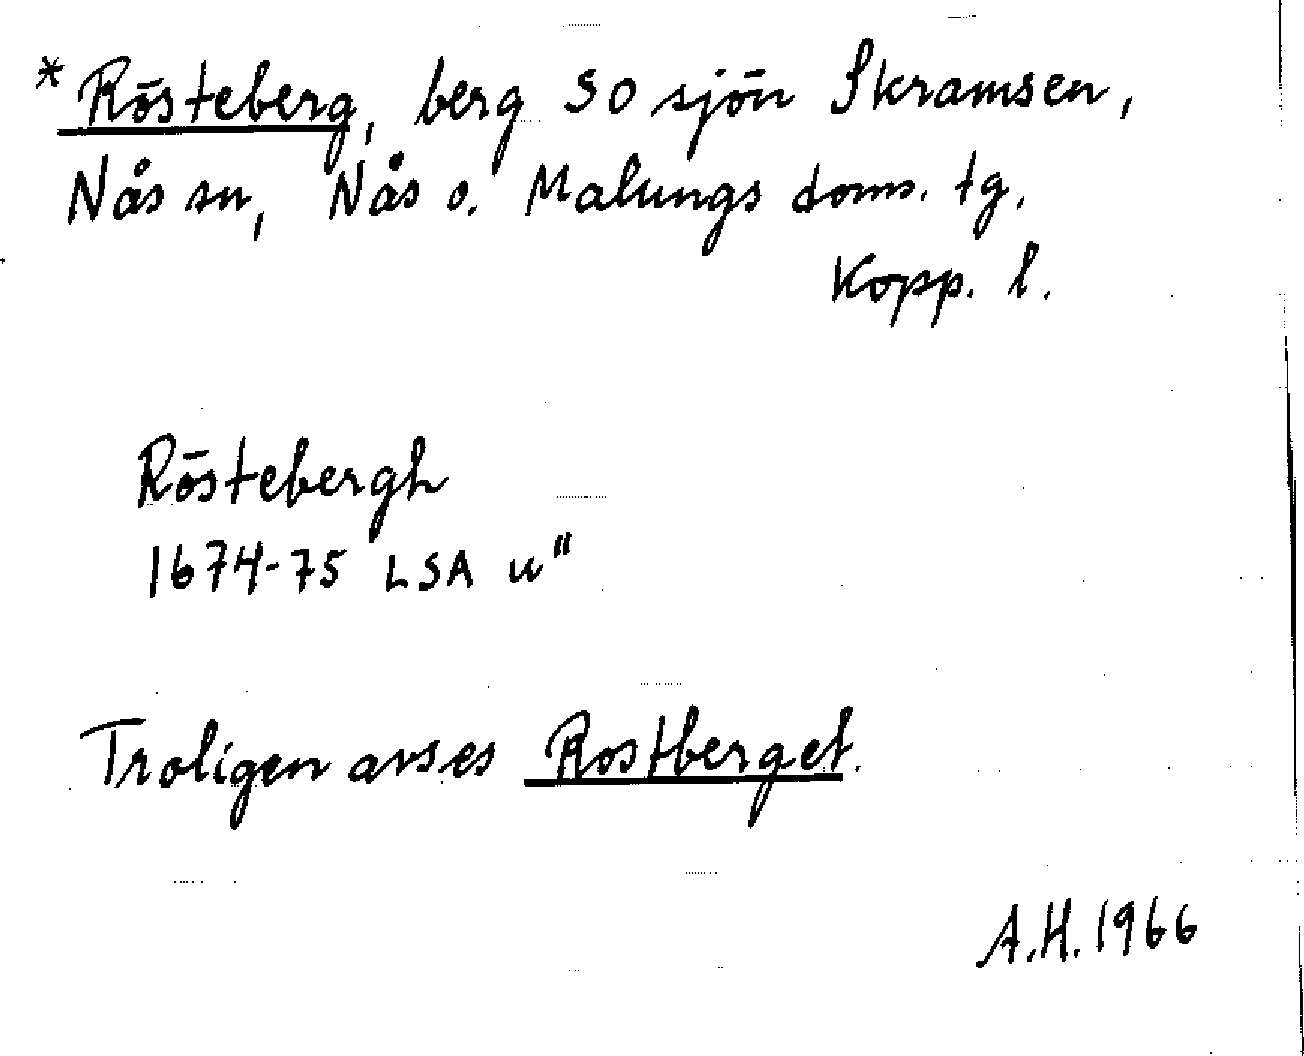 * Rösteberg, berg SO sjön Skramsen,
Nås sn, Nås o. Malungs doms. tg.
Kopp. l.
Röstebergh
1674-75 LSA u"
Troligen avses Rostberget.
A.H. 1966